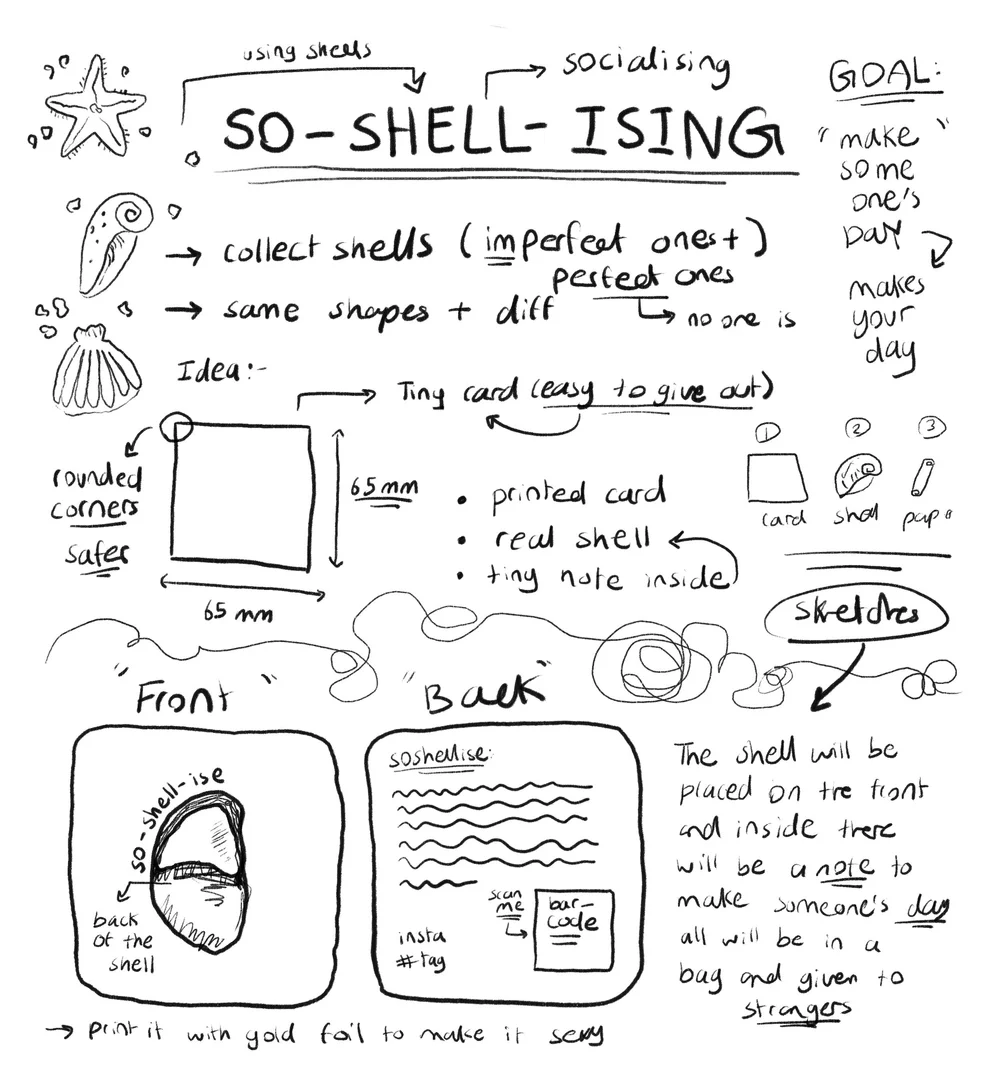 using shells
socialising
SO-SHELL-ISING
GOAL:
"make"
some
one's
DAY
makes
your
day
→ collect shells (imperfect ones+)
perfect ones
→ same shapes + diff
no one is
Idea:-
Tiny card (easy to give out)
rounded
corners
safer
65 mm
65 mm
• printed card
• real shell
• tiny note inside
1 2 3
card shell pape
sketches
"Front"
so-shell-ise
back
of the
shell
"Back"
soshellise:
scan
me
bar-
code
insta
#tag
The shell will be
placed on the front
and inside there
will be a note to
make someone's day
all will be in a
bag and given to
strangers
→ print it with gold foil to make it sexy